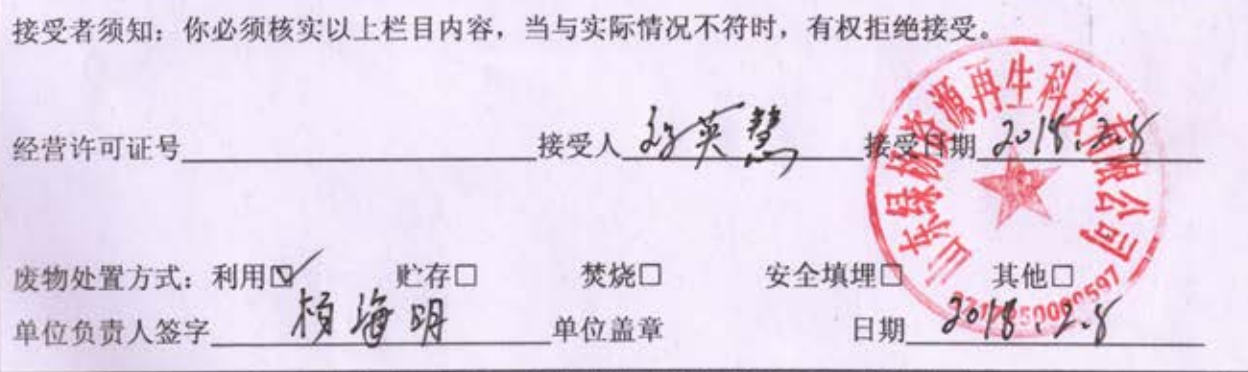 接受者须知：你必须核实以上栏目内容，当与实际情况不符时，有权拒绝接受。
经营许可证号 接受人 英慧 接受日期 2018.2.8
废物处置方式：利用☑ 贮存□ 焚烧□ 安全填埋□ 其他□
单位负责人签字 杨海明 单位盖章 日期 2018.2.8
山东绿协资源再生科技有限公司